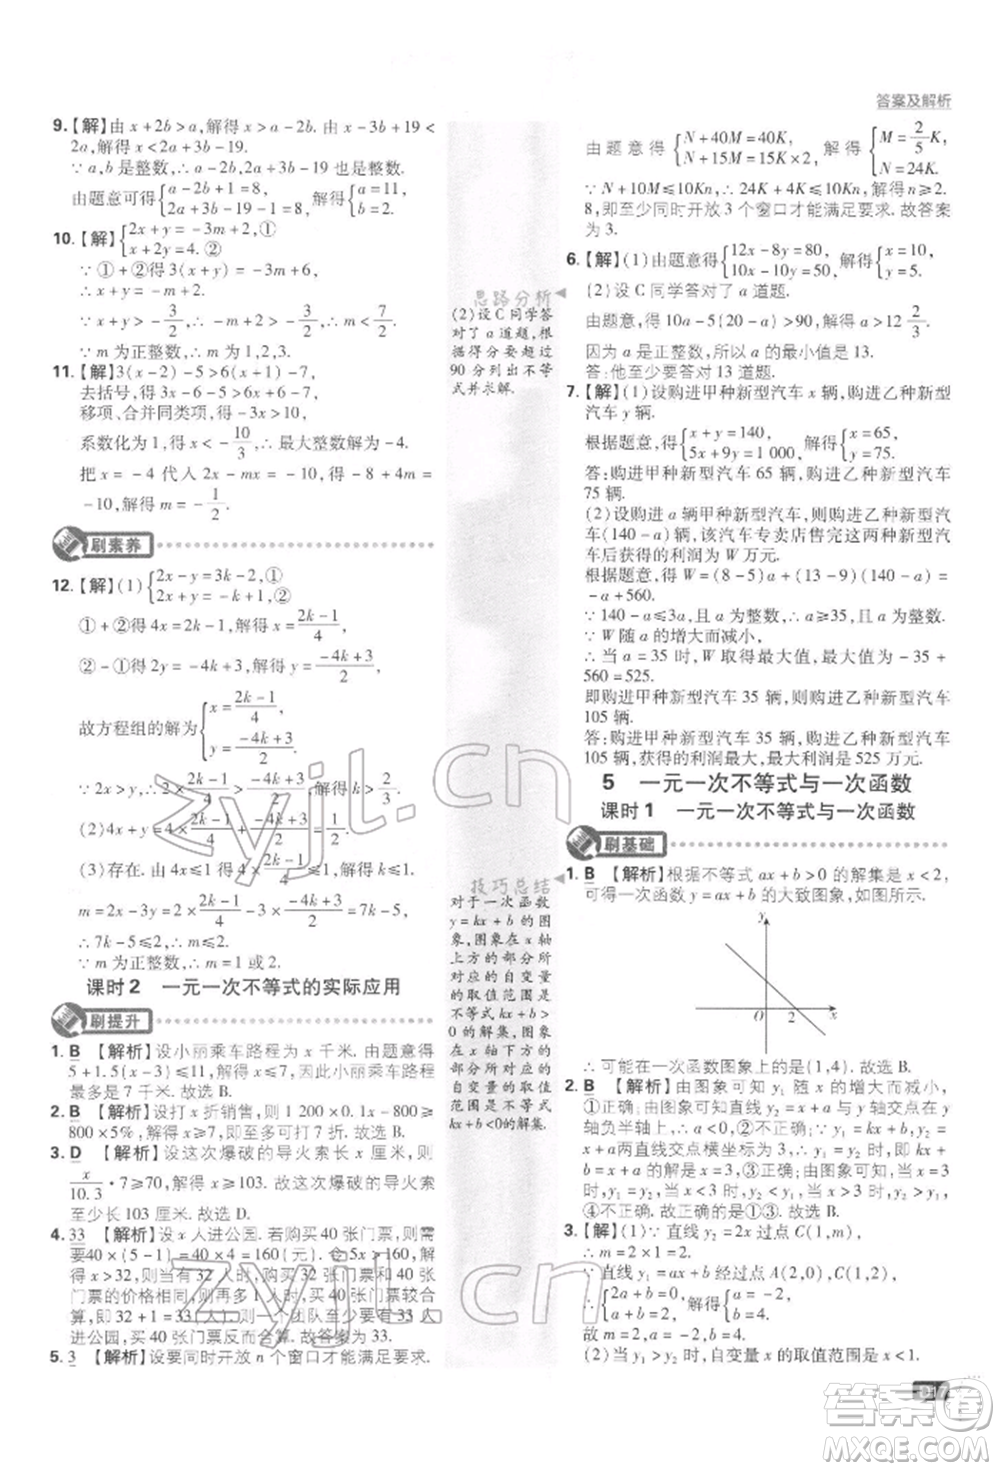 答案及解析
9.【解】由 x+2b>a,解得 x>a-2b.由 x-3b+19<
2a,解得 x<2a+3b-19.
∵ a,b 是整数,∴ a-2b,2a+3b-19 是整数.
由题意可得{a-2b+1=8, 2a+3b-19-1=8, 解得{a=11, b=1.
10.【解】{2x+y=-3m+2,① x+2y=4.②
∵ ①+②得 3(x+y)=-3m+6,
∴ x+y=-m+2.
∵ x+y>-3/2,∴ -m+2>-3/2,∴ m<7/2.
∵ m 为正整数,∴ m=1,2,3.
11.【解】3(x-2)-5>6(x+1)-7,
去括号,得 3x-6-5>6x+6-7,
移项、合并同类项,得 -3x>10,
系数化为 1,得 x<-10/3,∴ 最大整数解为 -4.
把 x = -4 代入 2x-mx=-10,得 -8+4m=
-10,解得 m=-1/2.
刷素养
12.【解】(1){2x-y=3k-2,① 2x+y=-k+1,②
①+②得 4x=2k-1,解得 x=(2k-1)/4,
②-①得 2y=-4k+3,解得 y=(-4k+3)/2,
故方程组的解为{x=(2k-1)/4, y=(-4k+3)/2.
(2)4x+y=4×(2k-1)/4+(-4k+3)/2=1/2.
(3)存在. 由 4x≤1 得 4×(2k-1)/4≤1,解得 k≤1.
m=2x-3y=2×(2k-1)/4-3×(-4k+3)/2=7k-5,
∴ 7k-5≤2,∴ m≤2.
∵ m 为正整数,∴ m=1 或 2.
课时 2 一元一次不等式的实际应用
刷提升
1. B 【解析】设小丽乘车路程为 x 千米. 由题意得
5+1.5(x-3)≤11,解得 x≤7,故小丽乘车路程
最多是 7 千米. 故选 B.
2. B 【解析】设打 x 折销售,由题意得 0.1x·
800×5%,解得 x≥7,即至多可打 7 折. 故选 B.
3. D 【解析】设这次爆破的导火索长 x 厘米,由题意得
x/10.3·7≥70,解得 x≥103. 故这次爆破的导火索
至少长 103 厘米. 故选 D.
4. 33 【解析】设 x 人进公园. 若购买 40 张门票,需要
40×(5-1)=4×40=160(元). 令 5x>160,解得
x>32,所以当 32 人时,购买 32 张门票和购买 40 张
门票的价格相同,则再多 1 人时买 40 张门票较合
算,32+1=33(人),则一个团队至少要有 33 人
进公园,买 40 张门票反而合算. 故答案为 33.
5. 3 【解析】设要同时开放 n 个窗口才能满足要求.
思路分析
(2)设 C 同学答
对了 a 道题,根
据得分要超过
90 分列出不等
式并求解.
技巧总结
对于一次函数
y=kx+b 的图
象,图象在 x 轴
上方的部分所
对应的自变量
的取值范围是
不等式 kx+b>
0 的解集,图象
在 x 轴下方的
部分所对应的
自变量的取值
范围是不等式
kx+b<0的解集.
由题意得{N+40M=40K, N+15M=15K×2, 解得{M=2/5K, N=24K.
∵ N+10M≤10Kn,∴ 24K+4K≤10Kn,解得 n≥2.
8,即至少同时开放 3 个窗口才能满足要求. 故答案
为 3.
6.【解】(1)由题意得{12x-8y=80, 10x-10y=50, 解得{x=10, y=5.
(2)设 C 同学答对了 a 道题.
由题意,得 10a-5(20-a)>90,解得 a>12 2/3.
因为 a 是正整数,所以 a 的最小值是 13.
答:他至少要答对 13 道题.
7.【解】(1)设购进甲种新型汽车 x 辆,购进乙种新型
汽车 y 辆.
根据题意,得{x+y=140, 5x+9y=1 000, 解得{x=65, y=75.
答:购进甲种新型汽车 65 辆,购进乙种新型汽车
75 辆.
(2)设购进 a 辆甲种新型汽车,则购进乙种新型汽车
(140-a)辆,设该汽车专卖店售完这两种新型汽车
后获得的利润为 W 万元.
根据题意,得 W=(8-5)a+(13-9)(140-a)=
-a+560.
∵ 140-a≤3a,且 a 为整数,∴ a≥35,且 a 为整数.
∵ W 随 a 的增大而减小,
∴ 当 a=35 时,W 取得最大值,最大值为 -35+
560=525.
即购进甲种新型汽车 35 辆,购进乙种新型汽车
105 辆.
答:购进甲种新型汽车 35 辆,购进乙种新型汽车
105 辆,获得的利润最大,最大利润是 525 万元.
5 一元一次不等式与一次函数
课时 1 一元一次不等式与一次函数
刷基础
1. B 【解析】根据不等式 ax+b>0 的解集是 x<2,
可得一次函数 y=ax+b 的大致图象,如图所示.
y
O 2 x
∴ 可能在一次函数图象上的是(1,4). 故选 B.
2. B 【解析】由图象可知 y₁ 随 x 的增大而减小,
①正确;由图象可知直线 y₂=x+a 与 y 轴交点在 y
轴负半轴上,∴ a<0,②错误;∵ y₁=kx+b 与 y₂=
x+a两直线交点横坐标为 3,由图象可知,当 x<3
时,y₁ 图象在 y₂ 图象上方,∴ 当 x<3 时,y₁>y₂,
③错误. ∴ 正确的个数是 1. 故选 B.
3.【解】(1)∵ 直线 y₂=2x 过点 C(m,2),
∴ 2=2m,∴ m=1.
∵ 直线 y₁=ax+b 经过点 A(2,0),B(1,2),
∴ {2a+b=0, a+b=2, 解得{a=-2, b=4.
故 a=-2,b=4,m=1.
(2)当 y₁>y₂ 时,自变量 x 的取值范围是 x<1.
D17
zyjl.cn
zyjl.cn
答案圈
MXQE.COM